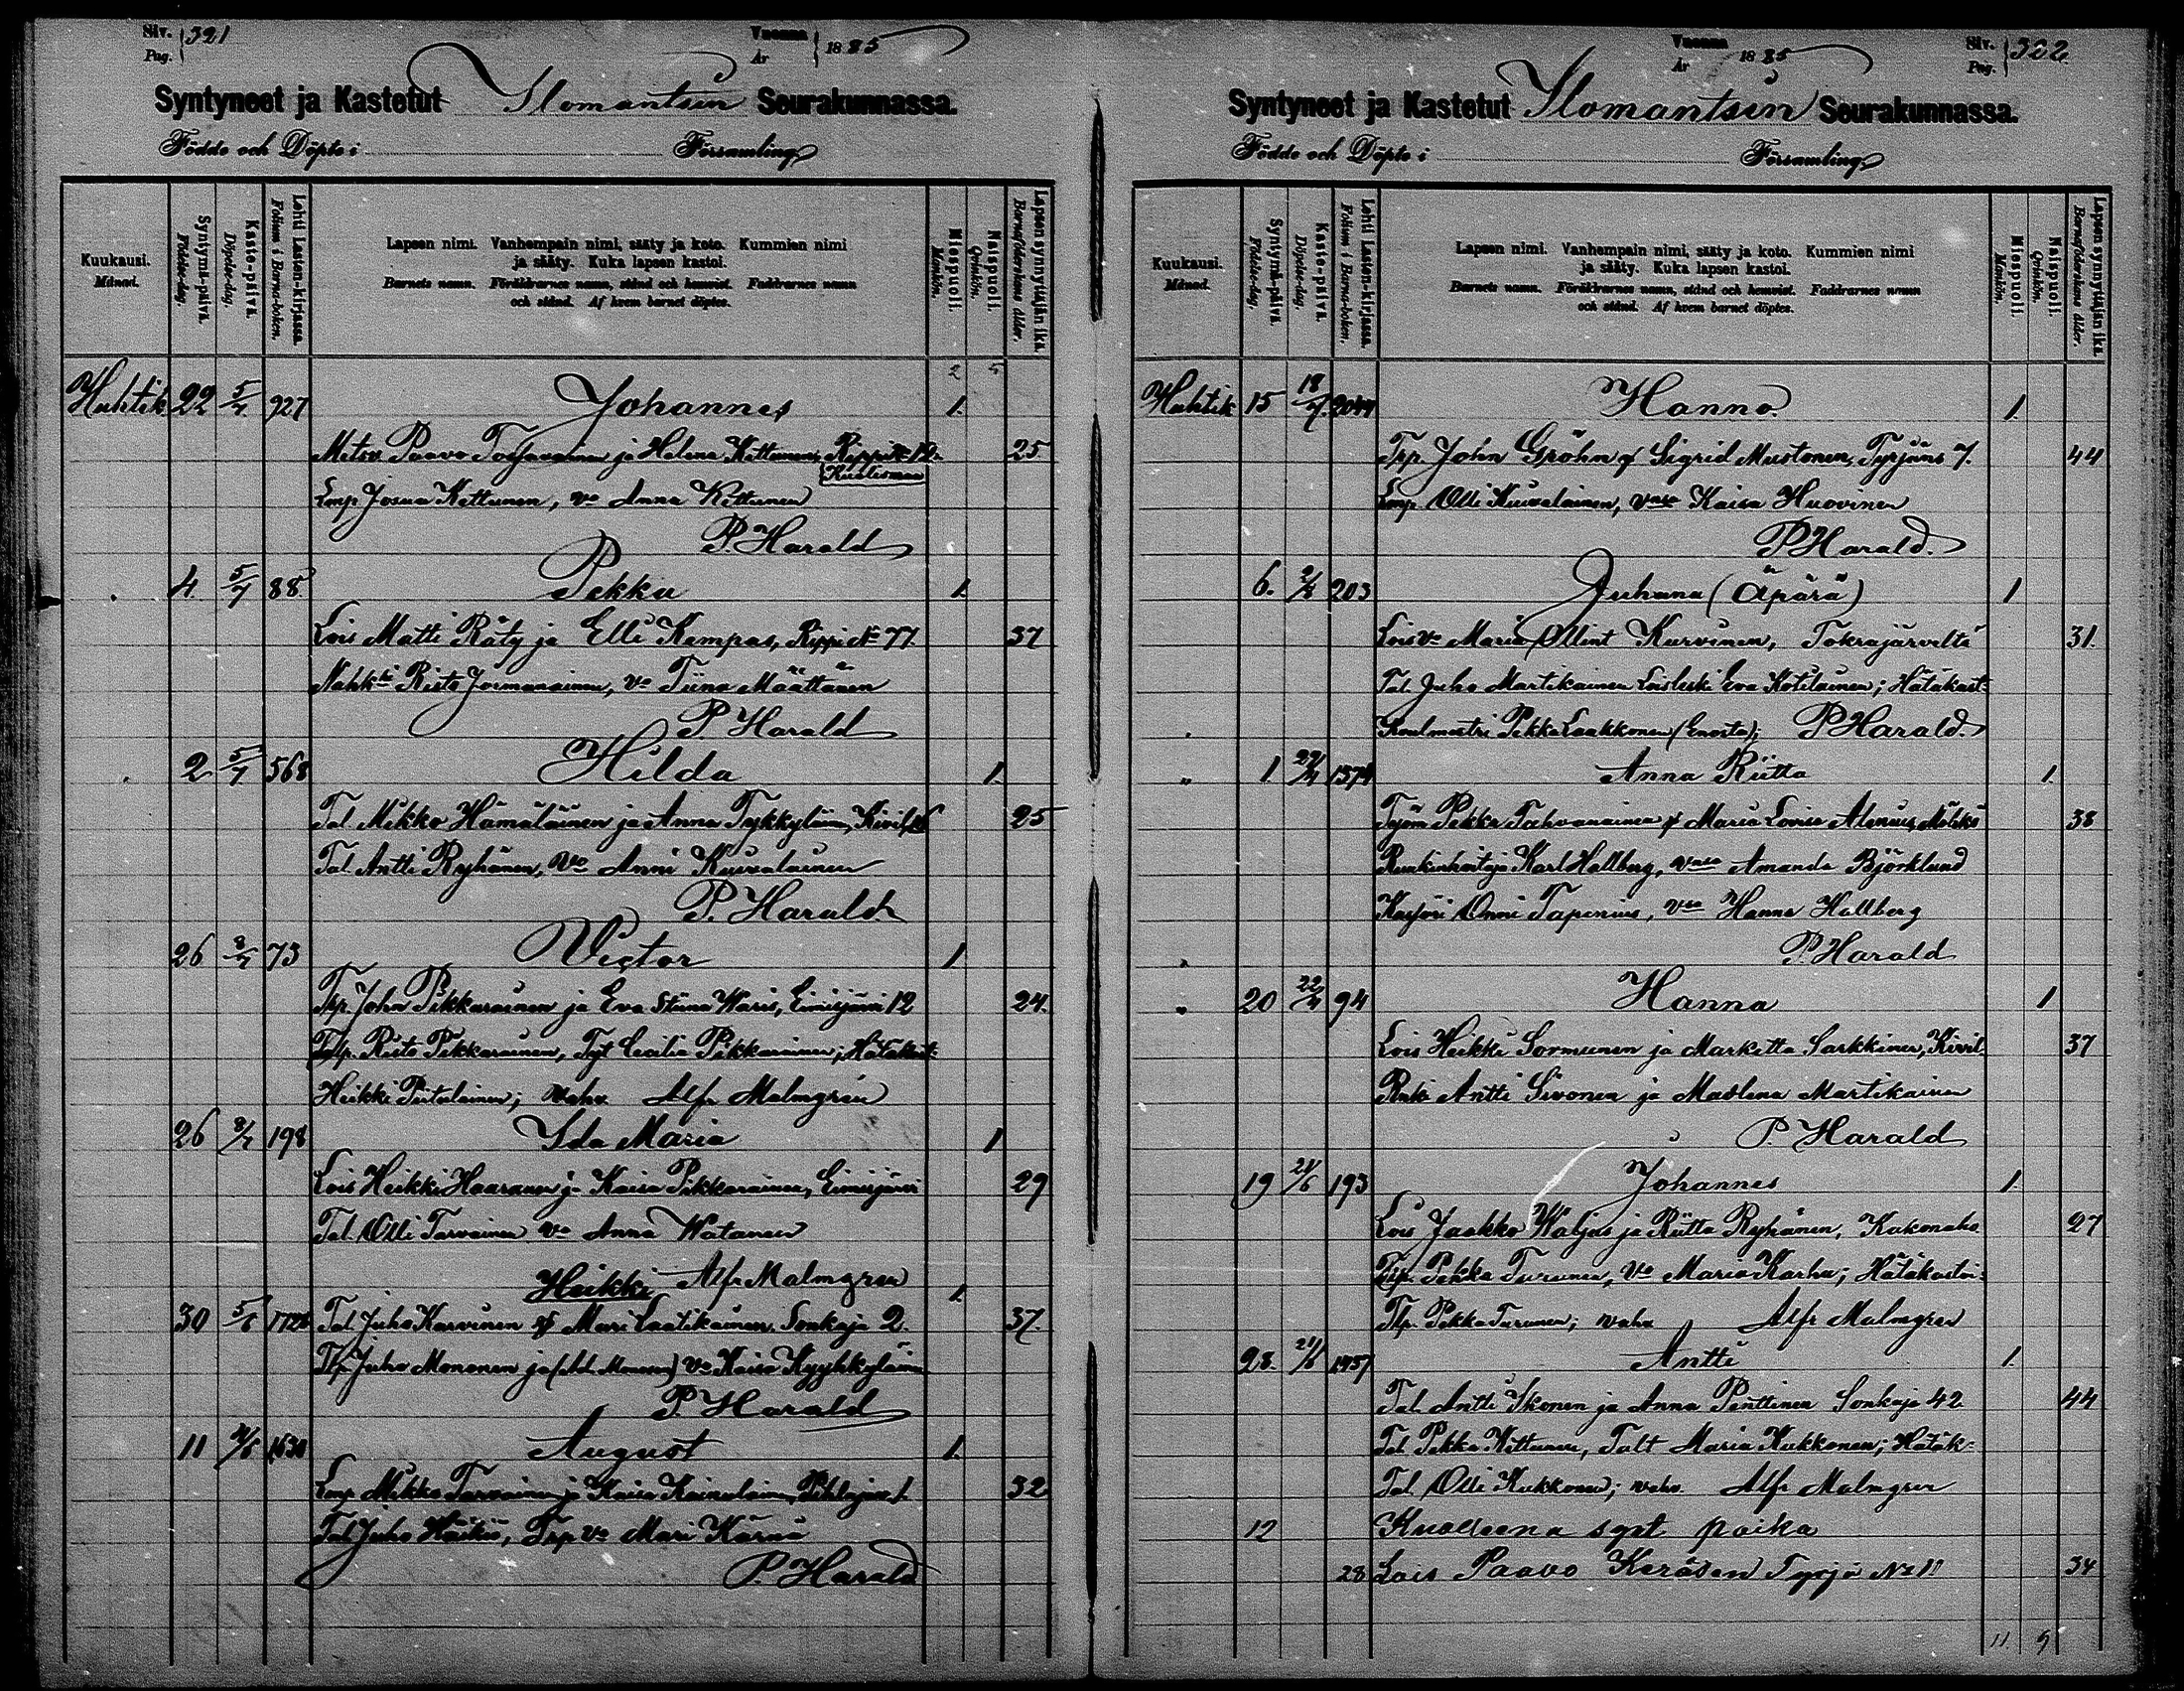 Siv. 321
Pag.
Vuonna 1885
År
Syntyneet ja Kastetut Ilomantsin Seurakunnassa.
Födde och Döpte i Församling
Kuukausi.
Månad.
Syntymä-päivä.
Födelse-dag.
Kaste-päivä.
Döpelse-dag.
Lehti Lasten-kirjassa.
Folium i Barna-boken.
Lapsen nimi. Vanhempain nimi, sääty ja koto. Kummien nimi
ja sääty. Kuka lapsen kastoi.
Barnets namn. Föräldrarnes namn, stånd och hemvist. Faddrarnes namn
och stånd. Af hvem barnet döptes.
Miespuoli.
Mankön.
Naispuoli.
Qvinkön.
Lapsen synnyttäjän ikä.
Barnaföderskans ålder.
2 5
Huhtik 22 5/4 927 Johannes 1.
Mets. Paavo ja Helena Kettunen, Rippi № 12. 25
Lmp Josua Kettunen, vo Anna Kettunen
P. Harald
4 5/4 88 Pekka 1.
Lois Matti Räty ja Elli Kempas, Rippi № 77. 37
Risto Jormanainen, vo Tiina Määttänen
P. Harald
2 5/4 568 Hilda 1.
Tal. Mikko Hämäläinen ja Anna Tykkyläinen, Kivil. 25
Tal. Antti Ryhänen, vo Anni Kuivalainen
P. Harald
26 8/4 73 Victor 1
Trp. John Pikkarainen ja Eva Stiina Waris, Eimisjärvi 12 24.
Risto Pikkarainen, Tyt Cecilia Pikkarainen; Hätäkast.
Heikki Piitulainen; vahv. Alfr Malmgrén
26 8/4 198 Ida Maria 1
Lois Heikki Haaranen ja Kaisa Pikkarainen, Eimisjärvi 29
Tal. Olli Tarvainen vo Anna Watanen
Heikki Alfr Malmgren 1.
30 5/5 Tal Juho Karvinen & Mari Laatikainen. Sonkaja 2. 37.
Juho Mononen ja vo Kaisa
P. Harald
11 1630 August 1.
Lmp Mikko Tarvainen ja Kaisa Kainulainen, 32
Tal Juho Häikiö, Trp vo Mari Kärnä
P. Harald
Siv. 322
Pag.
Vuonna 1885
År
Syntyneet ja Kastetut Ilomantsin Seurakunnassa.
Födde och Döpte i Församling
Kuukausi.
Månad.
Syntymä-päivä.
Födelse-dag.
Kaste-päivä.
Döpelse-dag.
Lehti Lasten-kirjassa.
Folium i Barna-boken.
Lapsen nimi. Vanhempain nimi, sääty ja koto. Kummien nimi
ja sääty. Kuka lapsen kastoi.
Barnets namn. Föräldrarnes namn, stånd och hemvist. Faddrarnes namn
och stånd. Af hvem barnet döptes.
Miespuoli.
Mankön.
Naispuoli.
Qvinkön.
Lapsen synnyttäjän ikä.
Barnaföderskans ålder.
Huhtik 15 18/4 Hanno. 1.
Trp. John Gröhn & Sigrid Mustonen, Tyrjäns 7. 44
Lmp Olli Kuivalainen, Kaisa Huovinen
P Harald.
6. 203 Juhana (Äpärä) 1
Lois vo Maria Ollint Kurvinen, Tokrajärveltä 31.
Tal. Juho Martikainen Loisleski Eva Kotilainen; Hätäkast.
Koulmestri Pekka Laakkonen (Enosta); P Harald.
" 1 1374 Anna Riitta 1.
Työm Pekka Tahvanainen & Maria Lovisa Alenius, Möhkö 38
Karl Hallberg, Amanda Björklund
Onni Tapenius, Hanna Hallberg
P. Harald
" 20 22/4 94 Hanna 1
Lois Heikki Sormunen ja Marketta Sarkkinen, Kivil. 37
Antti Sivonen ja Madlena Martikainen
P. Harald
19 193 Johannes 1.
Lois Jaakko Waljus ja Riitta Ryhänen, Kakonaho 27
Pekka Turunen, vo Maria Karhu; Hätäkastoi
Tlp. Pekka Turunen; vahv Alfr Malmgren
28. 1957 Antti 1.
Tal. Antti Ikonen ja Anna Penttinen Sonkaja 42 44
Tal. Pekka Kettunen, Talt Maria Kukkonen; Hätäk.
Tal. Olli Kukkonen; vahv. Alfr Malmgren
12 Kuolleena synt poika
28 Lois Paavo Keräsen Tyrjä № 11 34
11 9